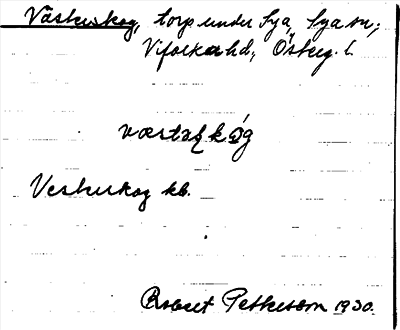 Västerskog, torp under Sya, Sya sn;
Vifolka hd, Österg. l.
Vesterskog kb.
Robert Petterson 1930.